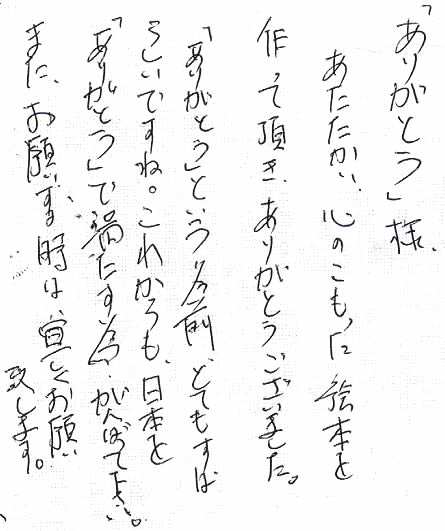 「ありがとう」様、
あたたかい、心のこもった絵本を
作って頂き、ありがとうございました。
「ありがとう」という名前、とてもすば
らしいですね。これからも、日本を
「ありがとう」で満たす為、がんばって下さい。
また、お願いする時は、宜しくお願い
致します。